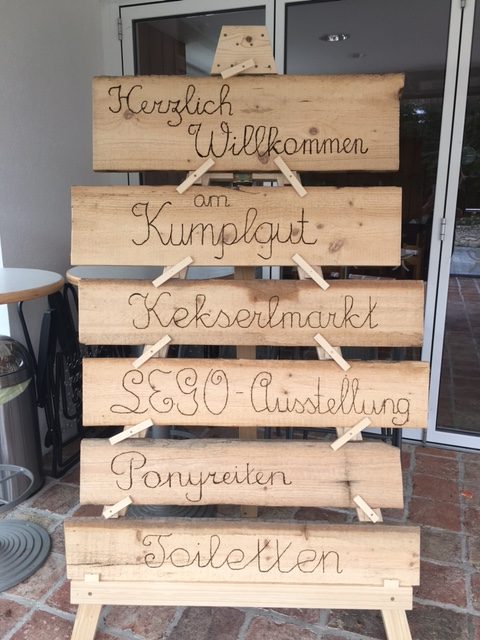 Herzlich
Willkommen
am
Kumplgut
Kekserlmarkt
LEGO-Ausstellung
Ponyreiten
Toiletten